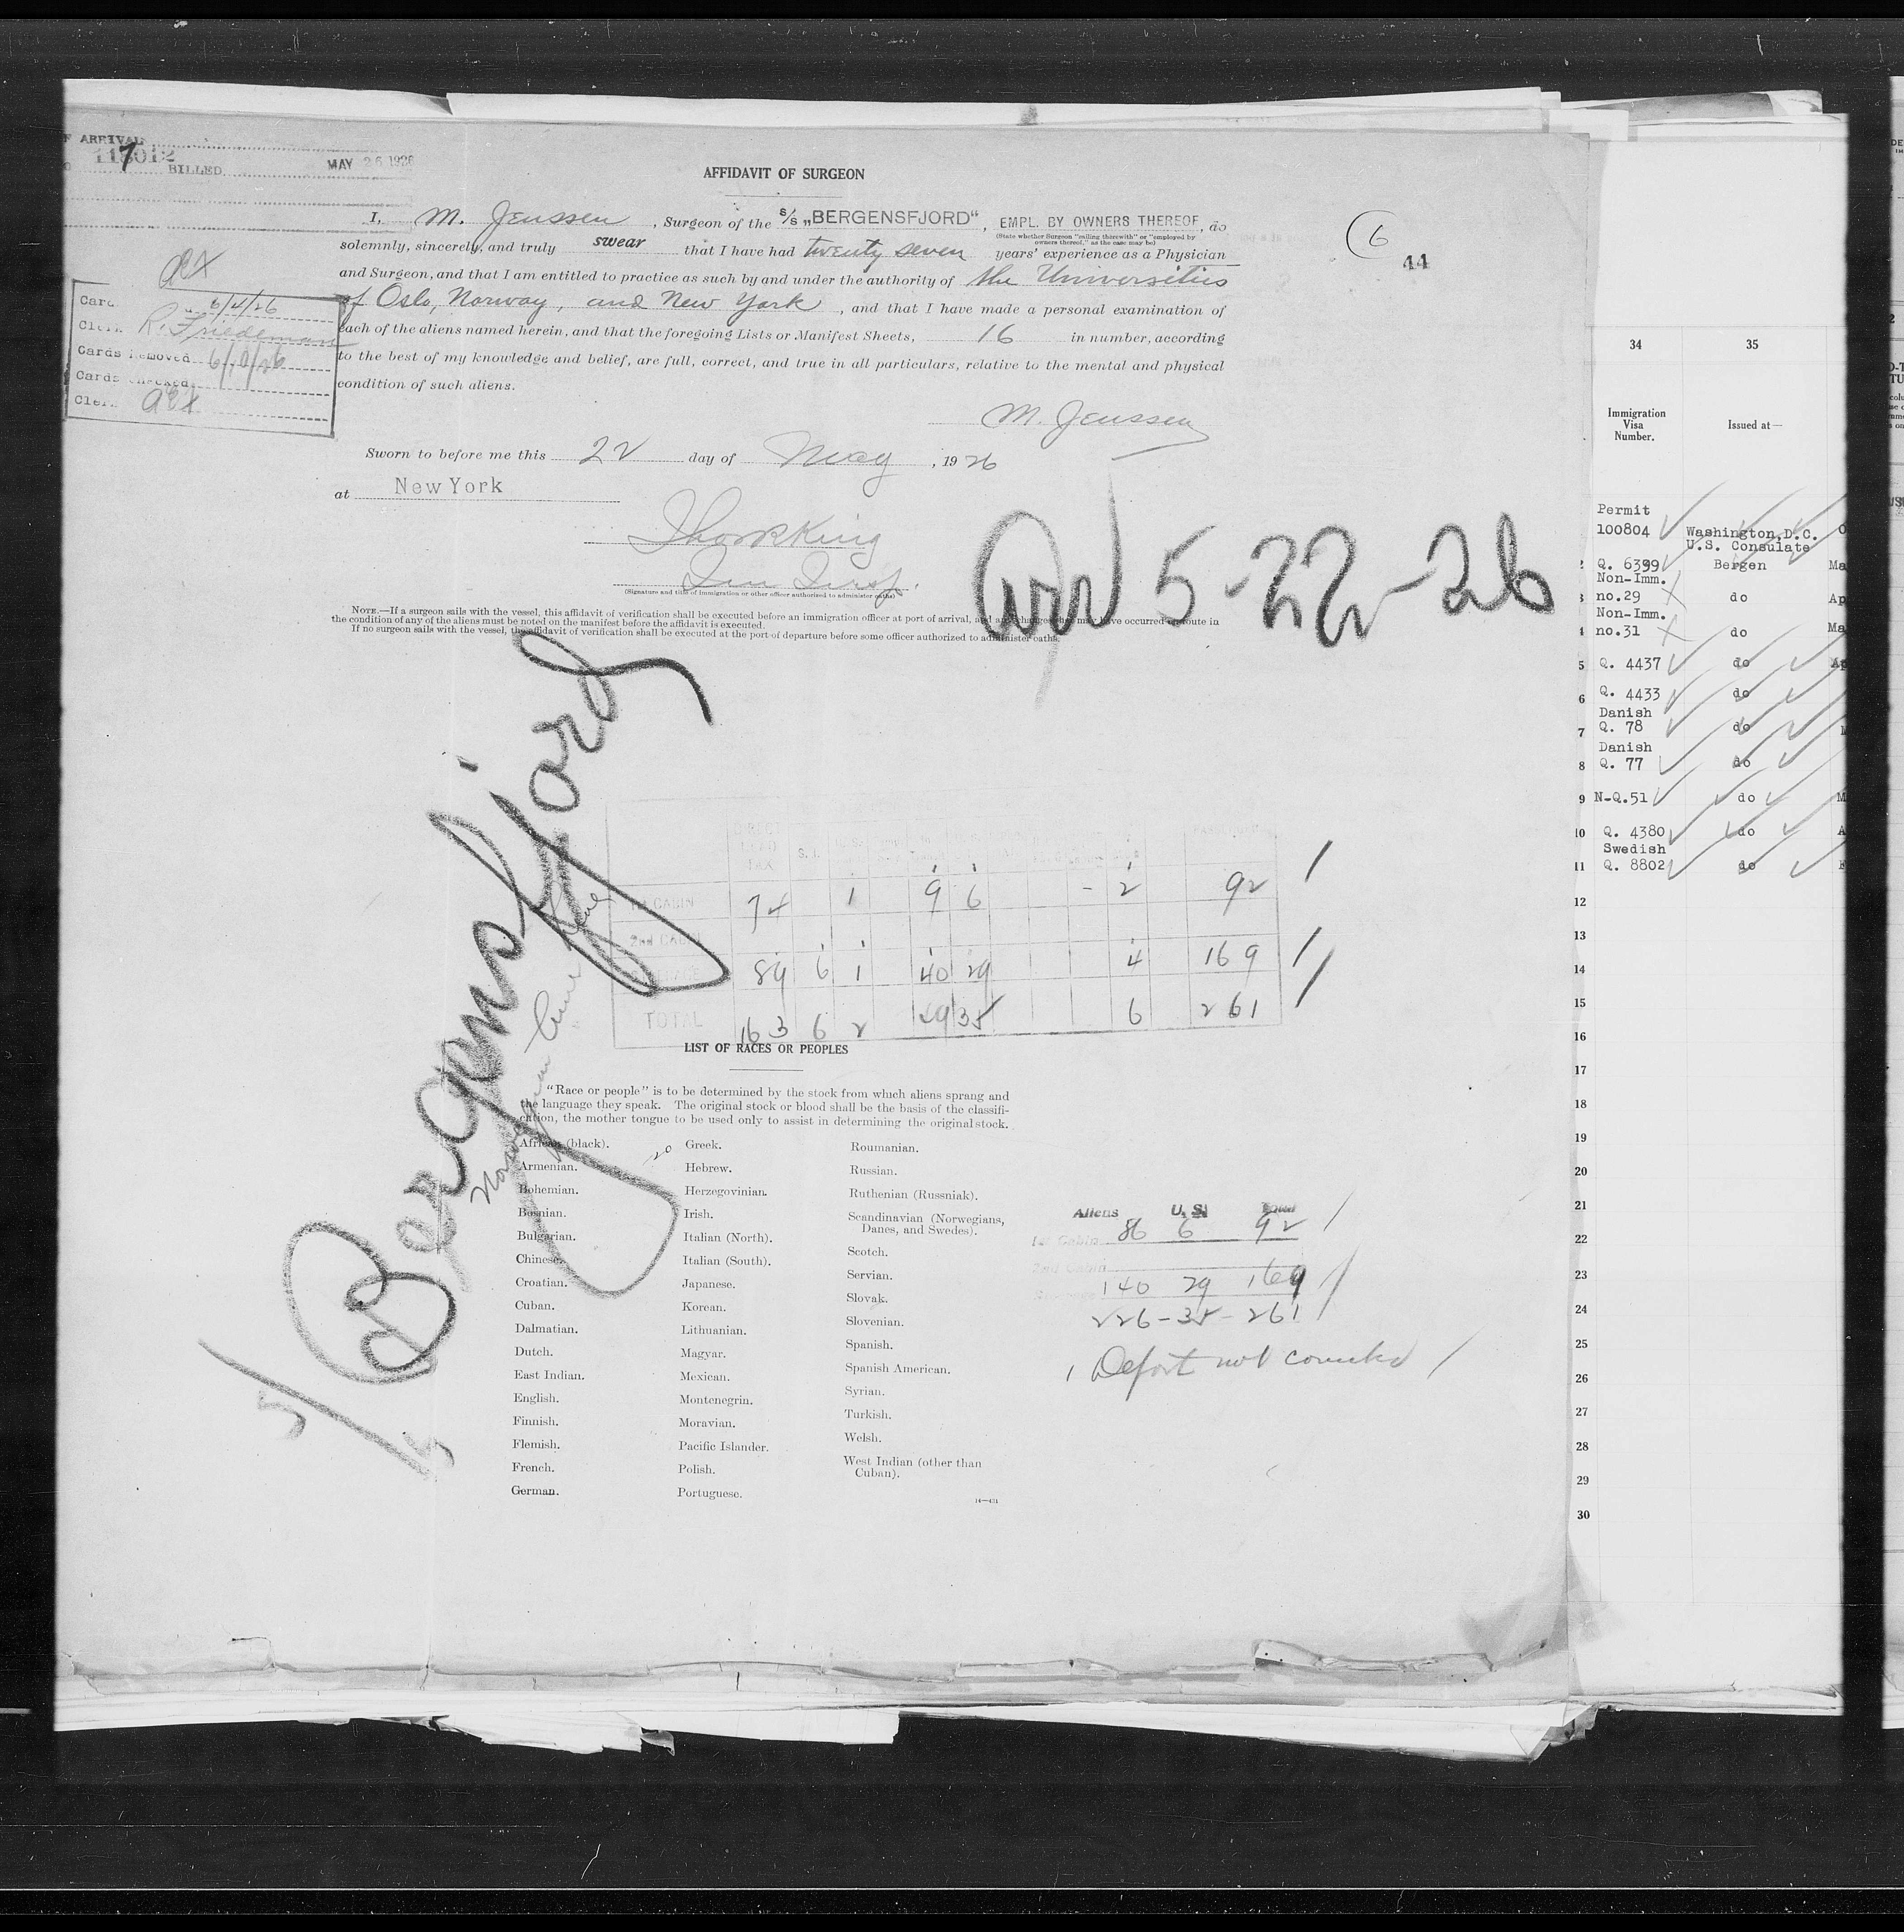 F ARRIVAL
118012
7
BILLED
MAY 26 1926
AFFIDAVIT OF SURGEON
I, M. Jenssen, Surgeon of the S/S „BERGENSFJORD“, EMPL. BY OWNERS THEREOF, do
(State whether Surgeon "sailing therewith" or "employed by
owners thereof," as the case may be)
solemnly, sincerely, and truly swear that I have had twenty seven years' experience as a Physician
and Surgeon, and that I am entitled to practice as such by and under the authority of the Universities
of Oslo, Norway, and New York, and that I have made a personal examination of
each of the aliens named herein, and that the foregoing Lists or Manifest Sheets, 16 in number, according
to the best of my knowledge and belief, are full, correct, and true in all particulars, relative to the mental and physical
condition of such aliens.
6
44
6/4/26
R. Friedeman
Cards Removed 6/10/26
Cards Checked
M. Jenssen
Sworn to before me this 22 day of May, 1926
at New York
Imm Insp.
(Signature and title of immigration or other officer authorized to administer oaths)
Arr 5-22-26
NOTE.—If a surgeon sails with the vessel, this affidavit of verification shall be executed before an immigration officer at port of arrival, and any changes that may have occurred en route in
the condition of any of the aliens must be noted on the manifest before the affidavit is executed.
If no surgeon sails with the vessel, the affidavit of verification shall be executed at the port of departure before some officer authorized to administer oaths.
Bergensfjord
Norwegian Amer Line
DIRECT HEAD TAX S. I. U.S.
1st CABIN 74 1 9 6 - 2 92
2nd CABIN
89 6 1 40 29 4 169
TOTAL 163 6 2 49 35 6 261
LIST OF RACES OR PEOPLES
"Race or people" is to be determined by the stock from which aliens sprang and
the language they speak. The original stock or blood shall be the basis of the classifi-
cation, the mother tongue to be used only to assist in determining the original stock.
African (black).
Armenian.
Bohemian.
Bosnian.
Bulgarian.
Chinese.
Croatian.
Cuban.
Dalmatian.
Dutch.
East Indian.
English.
Finnish.
Flemish.
French.
German.
Greek.
Hebrew.
Herzegovinian.
Irish.
Italian (North).
Italian (South).
Japanese.
Korean.
Lithuanian.
Magyar.
Mexican.
Montenegrin.
Moravian.
Pacific Islander.
Polish.
Portuguese.
Roumanian.
Russian.
Ruthenian (Russniak).
Scandinavian (Norwegians,
Danes, and Swedes).
Scotch.
Servian.
Slovak.
Slovenian.
Spanish.
Spanish American.
Syrian.
Turkish.
Welsh.
West Indian (other than
Cuban).
14—431
Aliens U. S. Total
1st Cabin 86 6 92
2nd Cabin
140 29 169
226-35-261
1 Deport not counted
34 35
Immigration
Visa
Number.
Issued at—
Permit
100804 Washington, D.C.
U.S. Consulate
Q. 6399 Bergen
Non-Imm.
no.29 do
Non-Imm.
no.31 do
5 Q. 4437 do
6 Q. 4433 do
Danish
7 Q. 78 do
Danish
8 Q. 77 do
9 N-Q.51 do
10 Q. 4380 do
Swedish
11 Q. 8802 do
12
13
14
15
16
17
18
19
20
21
22
23
24
25
26
27
28
29
30